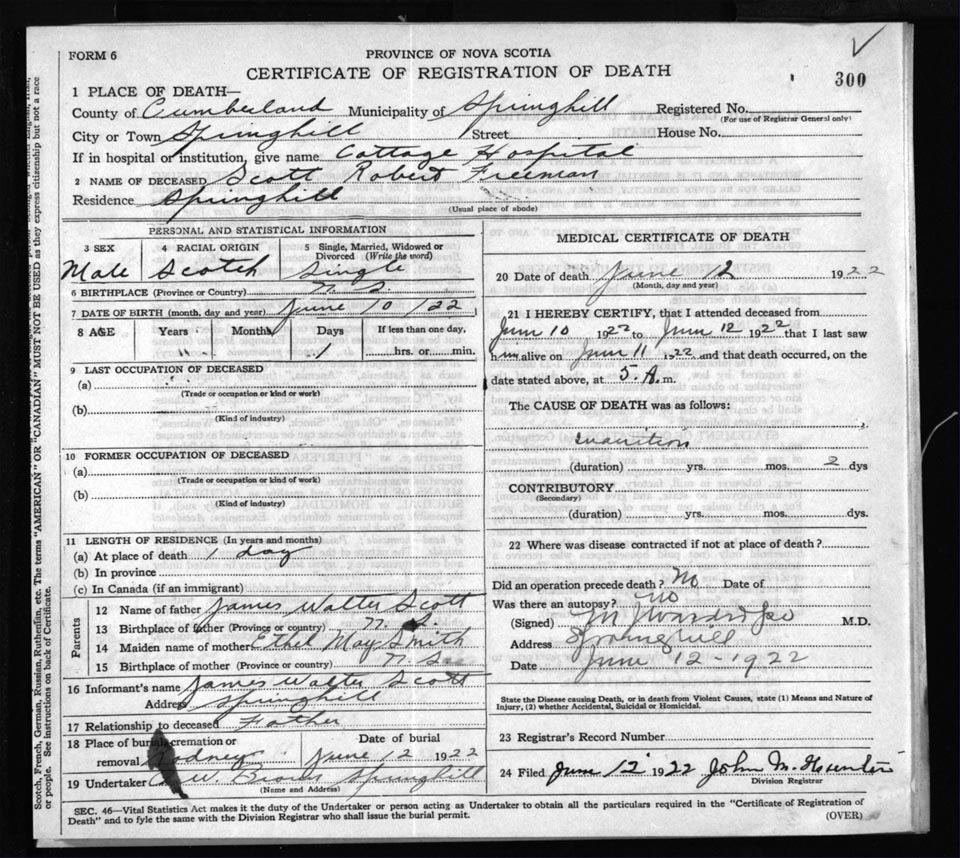 FORM 6
PROVINCE OF NOVA SCOTIA
CERTIFICATE OF REGISTRATION OF DEATH
300
1 PLACE OF DEATH—
County of Cumberland Municipality of Springhill Registered No.
(For use of Registrar General only)
City or Town Springhill Street House No.
If in hospital or institution, give name Cottage Hospital
2 NAME OF DECEASED Scott Robert Freeman
Residence Springhill
(Usual place of abode)
PERSONAL AND STATISTICAL INFORMATION
3 SEX 4 RACIAL ORIGIN 5 Single, Married, Widowed or Divorced (Write the word)
Male Scotch Single
6 BIRTHPLACE (Province or Country) N. S.
7 DATE OF BIRTH (month, day and year) June 10 /22
8 AGE Years Months Days If less than one day,
1 hrs. or min.
9 LAST OCCUPATION OF DECEASED
(a)
(Trade or occupation or kind or work)
(b)
(Kind of industry)
10 FORMER OCCUPATION OF DECEASED
(a)
(Trade or occupation or kind of work)
(b)
(Kind of industry)
11 LENGTH OF RESIDENCE (In years and months)
(a) At place of death 1 day
(b) In province
(c) In Canada (if an immigrant)
Parents
12 Name of father James Walter Scott
13 Birthplace of father (Province or country) N. S.
14 Maiden name of mother Ethel May Smith
15 Birthplace of mother (Province or country) N. S.
16 Informant's name James Walter Scott
Address Springhill
17 Relationship to deceased Father
18 Place of burial cremation or removal Date of burial
June 12 1922
19 Undertaker Springhill
(Name and Address)
MEDICAL CERTIFICATE OF DEATH
20 Date of death June 12 1922
(Month, day and year)
21 I HEREBY CERTIFY, that I attended deceased from
June 10 1922 to June 12 1922 that I last saw
him alive on June 11 1922 and that death occurred, on the
date stated above, at 5. A. m.
The CAUSE OF DEATH was as follows:
Inanition
(duration) yrs. mos. 2 dys
CONTRIBUTORY
(Secondary)
(duration) yrs. mos. dys.
22 Where was disease contracted if not at place of death?
Did an operation precede death? No Date of
Was there an autopsy? No
(Signed) M.D.
Address Springhill
Date June 12-1922
State the Disease causing Death, or in death from Violent Causes, state (1) Means and Nature of
Injury, (2) whether Accidental, Suicidal or Homicidal.
23 Registrar's Record Number
24 Filed June 12 1922 John M. Hunter
Division Registrar
SEC. 46—Vital Statistics Act makes it the duty of the Undertaker or person acting as Undertaker to obtain all the particulars required in the "Certificate of Registration of
Death" and to fyle the same with the Division Registrar who shall issue the burial permit.
(OVER)
Scotch, French, German, Russian, Ruthenian, etc. The terms "AMERICAN" or "CANADIAN" MUST NOT BE USED as they express citizenship but not a race
or people. See instructions on back of Certificate.